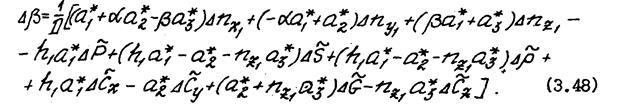 Δβ=1/Д[(a₁*+αa₂*-βa₃*)Δn_x₁+(-αa₁*+a₂*)Δn_y₁+(βa₁*+a₃*)Δn_z₁-
-h₁a₁*ΔP̃+(h₁a₁*-a₂*-n_z₁a₃*)ΔS̃+(h₁a₁*-a₂*-n_z₁a₃*)Δρ̃+
+h₁a₁*ΔC̃_x-a₂*ΔC̃_y+(a₂*+n_z₁a₃*)ΔG̃-n_z₁a₃*ΔC̃_z]. (3.48)